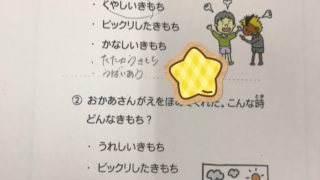 ・ くやしいきもち
・ ビックリしたきもち
・ かなしいきもち
・ たたかうきもち
・ うばいあう
② おかあさんがえをほめてくれた。こんな時とき
どんなきもち？
・ うれしいきもち
・ ビックリしたきもち